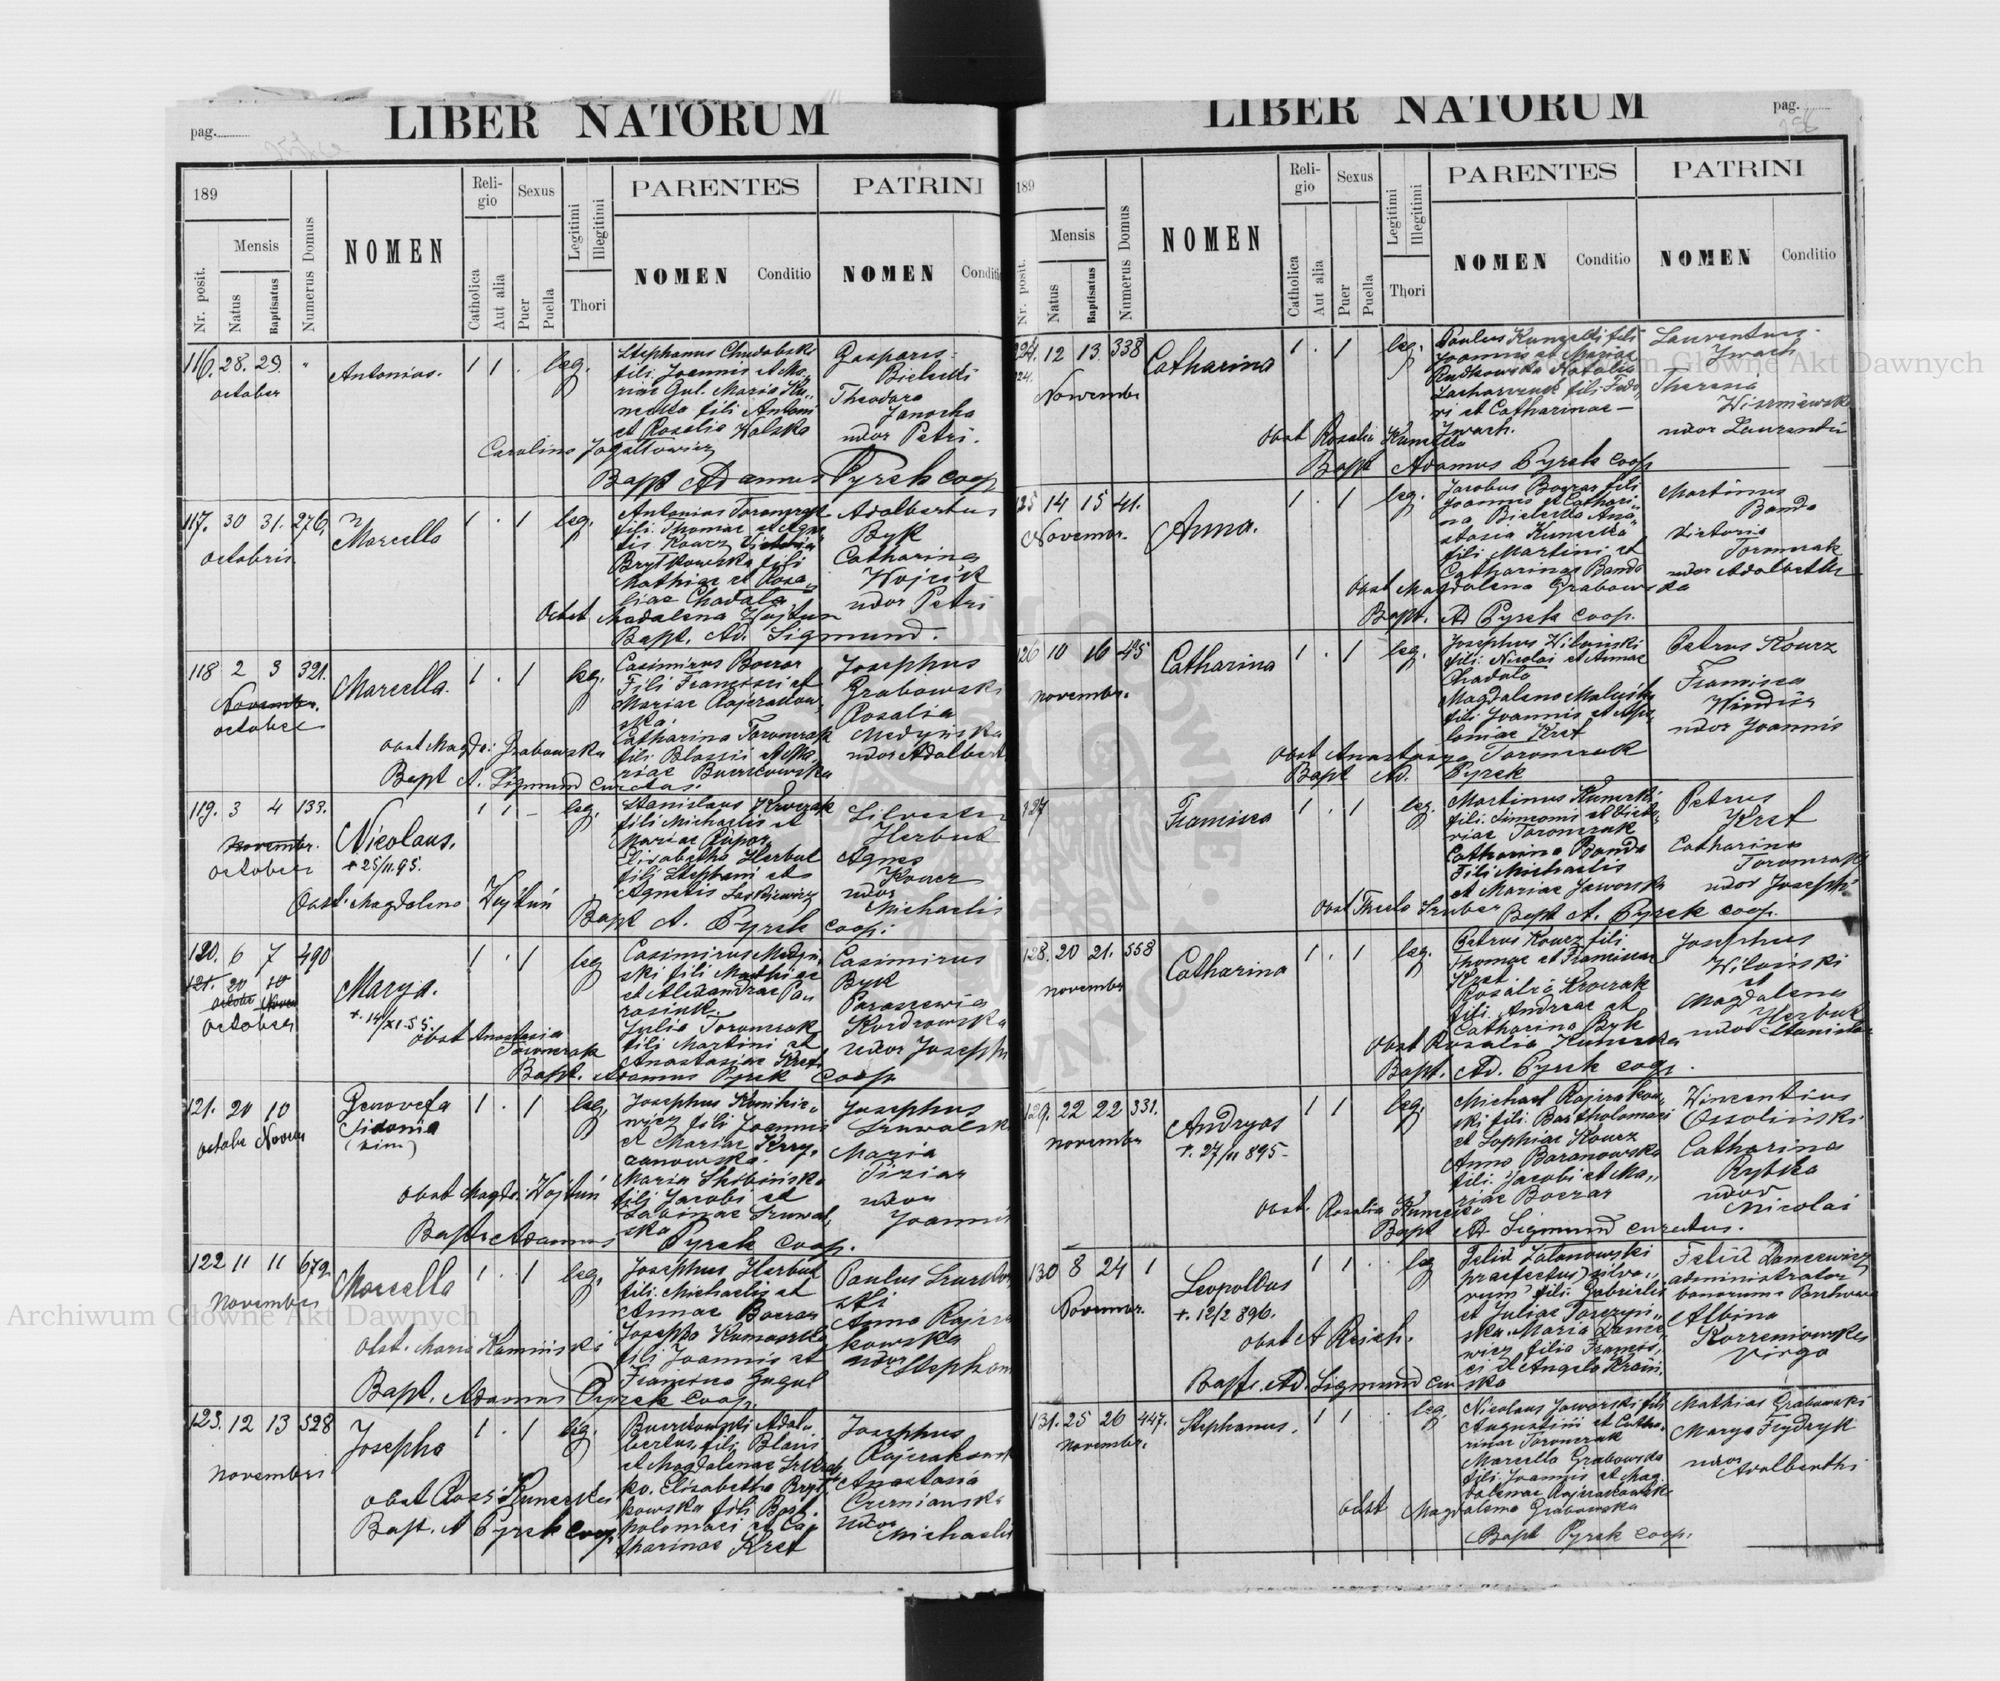 pag.
LIBER NATORUM
189
Mensis
Nr. posit.
Natus
Baptisatus
Numerus Domus
NOMEN
Reli-
gio
Catholica
Aut alia
Sexus
Puer
Puella
Legitimi
Illegitimi
Thori
PARENTES
NOMEN
Conditio
PATRINI
NOMEN
Conditi
116. 28. 29. "
october
Antonius.
1 1 . leg.
Stephanus Chudobski
fili. Joannis et Ma-
riae Gul. Maria Ku-
necka fili Antoni
et Rosalia Wolska
Gasparus
Bielecki
Theodora
Janocha
uxor Petri.
Carolina Jogałłowicz
Bapt Adamus Pyrek coop
117. 30 31. 276.
octobris
Marcella
1 . 1 leg.
Antonius Toromczak
fili. Thomae et Agne
tis Kourz Victoria
Brytkowska fili
Mathiae et Rosa
liae Chadala
Adalbertus
Byk
Catharina
Wojcik
uxor Petri
Obst Madalena Wojtun
Bapt. Ad. Sigmund.
118 2 3 321.
November.
october
Marcella.
1 . 1 leg.
Casimirus Boczar
Fili Francisci et
Mariae Rajczakow-
ska.
Catharina Toromczak
fili Blasii et Ma
riae Buczkowska
Josephus
Grabowski
Rosalia
Medyńska
uxor Adalbert
Obst Magda: Grabowska
Bapt A. Sigmund Curatus.
119. 3 4 133.
novembr.
october
Nicolaus.
+ 25/11.95.
1 1 - leg.
Stanislaus Kroczak
fili Michaelis et
Mariae
Elisabetha Herbut
fili Stephani et
Agnetis
Silvester
Herbut
Agnes
Kourz
uxor
Michaelis
Obst. Magdalena Wojtuń
Bapt A. Pyrek coop.
120. 6 7 490
121. 20 10
October
Marya.
+. 14/XI.55.
1 . 1 leg
Casimirus Medyń
ski fili Mathiae
et Alexandrae Pa
rasiuk.
Julia Toromczak
fili Martini et
Anastasiae Kret
Casimirus
Byk
Parascewia
Kordrowska
uxor Josephi
obst Anastasia
Toromczak
Bapt. Adamus Pyrek Coop
121. 20 10
octobr Novem
Genovefa
Sidonia
1 . 1 leg.
Josephus
wicz fili Joannis
et Mariae Krzy-
zanowska.
Maria Skibińska
fili Jacobi et
Sabinae Szuwal
ska
Josephus
Szuwalski
Maria
uxor
Joannis
Obst Magda: Wojtuń
Bapt. Adamus Pyrek Coop.
122 11 11 672
November
Marcella
1 . 1 leg.
Josephus Herbut
fili. Michaelis et
Annae Boczar
Josepha
fili Joannis et
Francisca
Paulus
ski
Anna Rajcza
kowska
uxor
Stephani
Obst. Maria Kaminski
Bapt. Adamus Pyrek Coop.
123. 12 13 528
novembris
Josepha
1 . 1 leg.
Buczkowski Adal
bertus fili Blasii
et Magdalenae
ko. Elisabetha Bryt
kowska fili Bart.
holomaei et Ca
tharinae Kret
Josephus
Rajczakowsk
Anastasia
Czerniawska
uxor
Michaelis
Obst Rosa: Kunecka
Bapt. A Pyrek Coop.
pag.
256
LIBER NATORUM
189
Mensis
Nr. posit.
Natus
Baptisatus
Numerus Domus
NOMEN
Reli-
gio
Catholica
Aut alia
Sexus
Puer
Puella
Legitimi
Illegitimi
Thori
PARENTES
NOMEN
Conditio
PATRINI
NOMEN
Conditio
124. 12 13. 338
124.
November
Catharina
1 . 1 leg.
Paulus fili
Joannis et Mariae
Rudkowska Natalia
fili Fedo
ri et Catharinae -
Iwach.
Laurentius
Iwach
Theresia
Wiszniewska
uxor Laurentii
Obst Rosalia Kunecka
Bapt Adamus Pyrek coop
125 14 15 41.
Novembr.
Anna.
1 . 1 leg.
Jacobus Boczar fili
Joannis et Cathari
na Bielecka Ana
stasia Kunecka
fili Martini et
Catharinae Banda
Martinus
Banda
Victoria
Toromczak
uxor Adalberti
Obst Magdalena Grabowska
Bapt. Ad Pyrek coop.
126 10 16 45
novembr.
Catharina
1 . 1 leg.
Josephus Wilwinski
fili. Nicolai et Annae
Chadala
Magdalena
fili. Joannis et Apo
loniae Kret
Petrus Kourz
Francisca
uxor Joannis
Obst Anastasya Toromczak
Bapt Ad. Pyrek
127
Francisca
1 . 1 leg.
Martinus Kunecki
fili. Simeonis et Victo
riae Toromczak
Catharina Banda
Fili Michaelis
et Mariae Jaworska
Petrus
Kret
Catharina
Toromczak
uxor Josephi
Obst Thecla Bapt A. Pyrek coop.
128. 20 21. 558
november
Catharina
1 . 1 leg.
Petrus Kourz fili
Thomae et Franciscae
Kret
Rosalia Kroczak
fili. Andreae et
Catharina Byk
Josephus
Wilwinski
et
Magdalena
Herbut
uxor Stanislai
Obst Rosalia Kunecka
Bapt. Ad. Pyrek coop.
129. 22 22 331.
november
Andryas
+. 27/11 895-
1 1 leg.
Michael Rajczakow
ski fili. Bartholomaei
et Sophiae Kourz
Anna Baranowska
fili. Jacobi et Ma
riae Boczar
Wincentius
Ossoliński
Catharina
Rybka
uxor
Nicolai
Obst. Rosalia Kunecka
Bapt Ad Sigmund curatus.
130 8 24 1
Novembr.
Leopoldus
+. 12/2 896.
1 1 . leg
Felix Zalanowski
praefectus silva
rum fili. Gabrielis
et Juliae Torczyń
ska. Maria
wicz filia Francis
ci et Angela
ska
Felix
administrator
bonorum
Albina
Korzeniowska
Virgo
obst A Reich.
Bapt. Ad. Sigmund Cur
131. 25 26 447.
novembr.
Stephanus.
1 1 . leg.
Nicolaus Jaworski fili
Augustini et Catha
rinae Toromczak
Marcella Grabowska
fili. Joannis et Mag
dalenae Rajczakowska
Mathias Grabowski
Marya Frydryk
uxor
Adalberthi
obst Magdalena Grabowska
Bapt Pyrek coop.
Archiwum Główne Akt Dawnych
Archiwum Główne Akt Dawnych